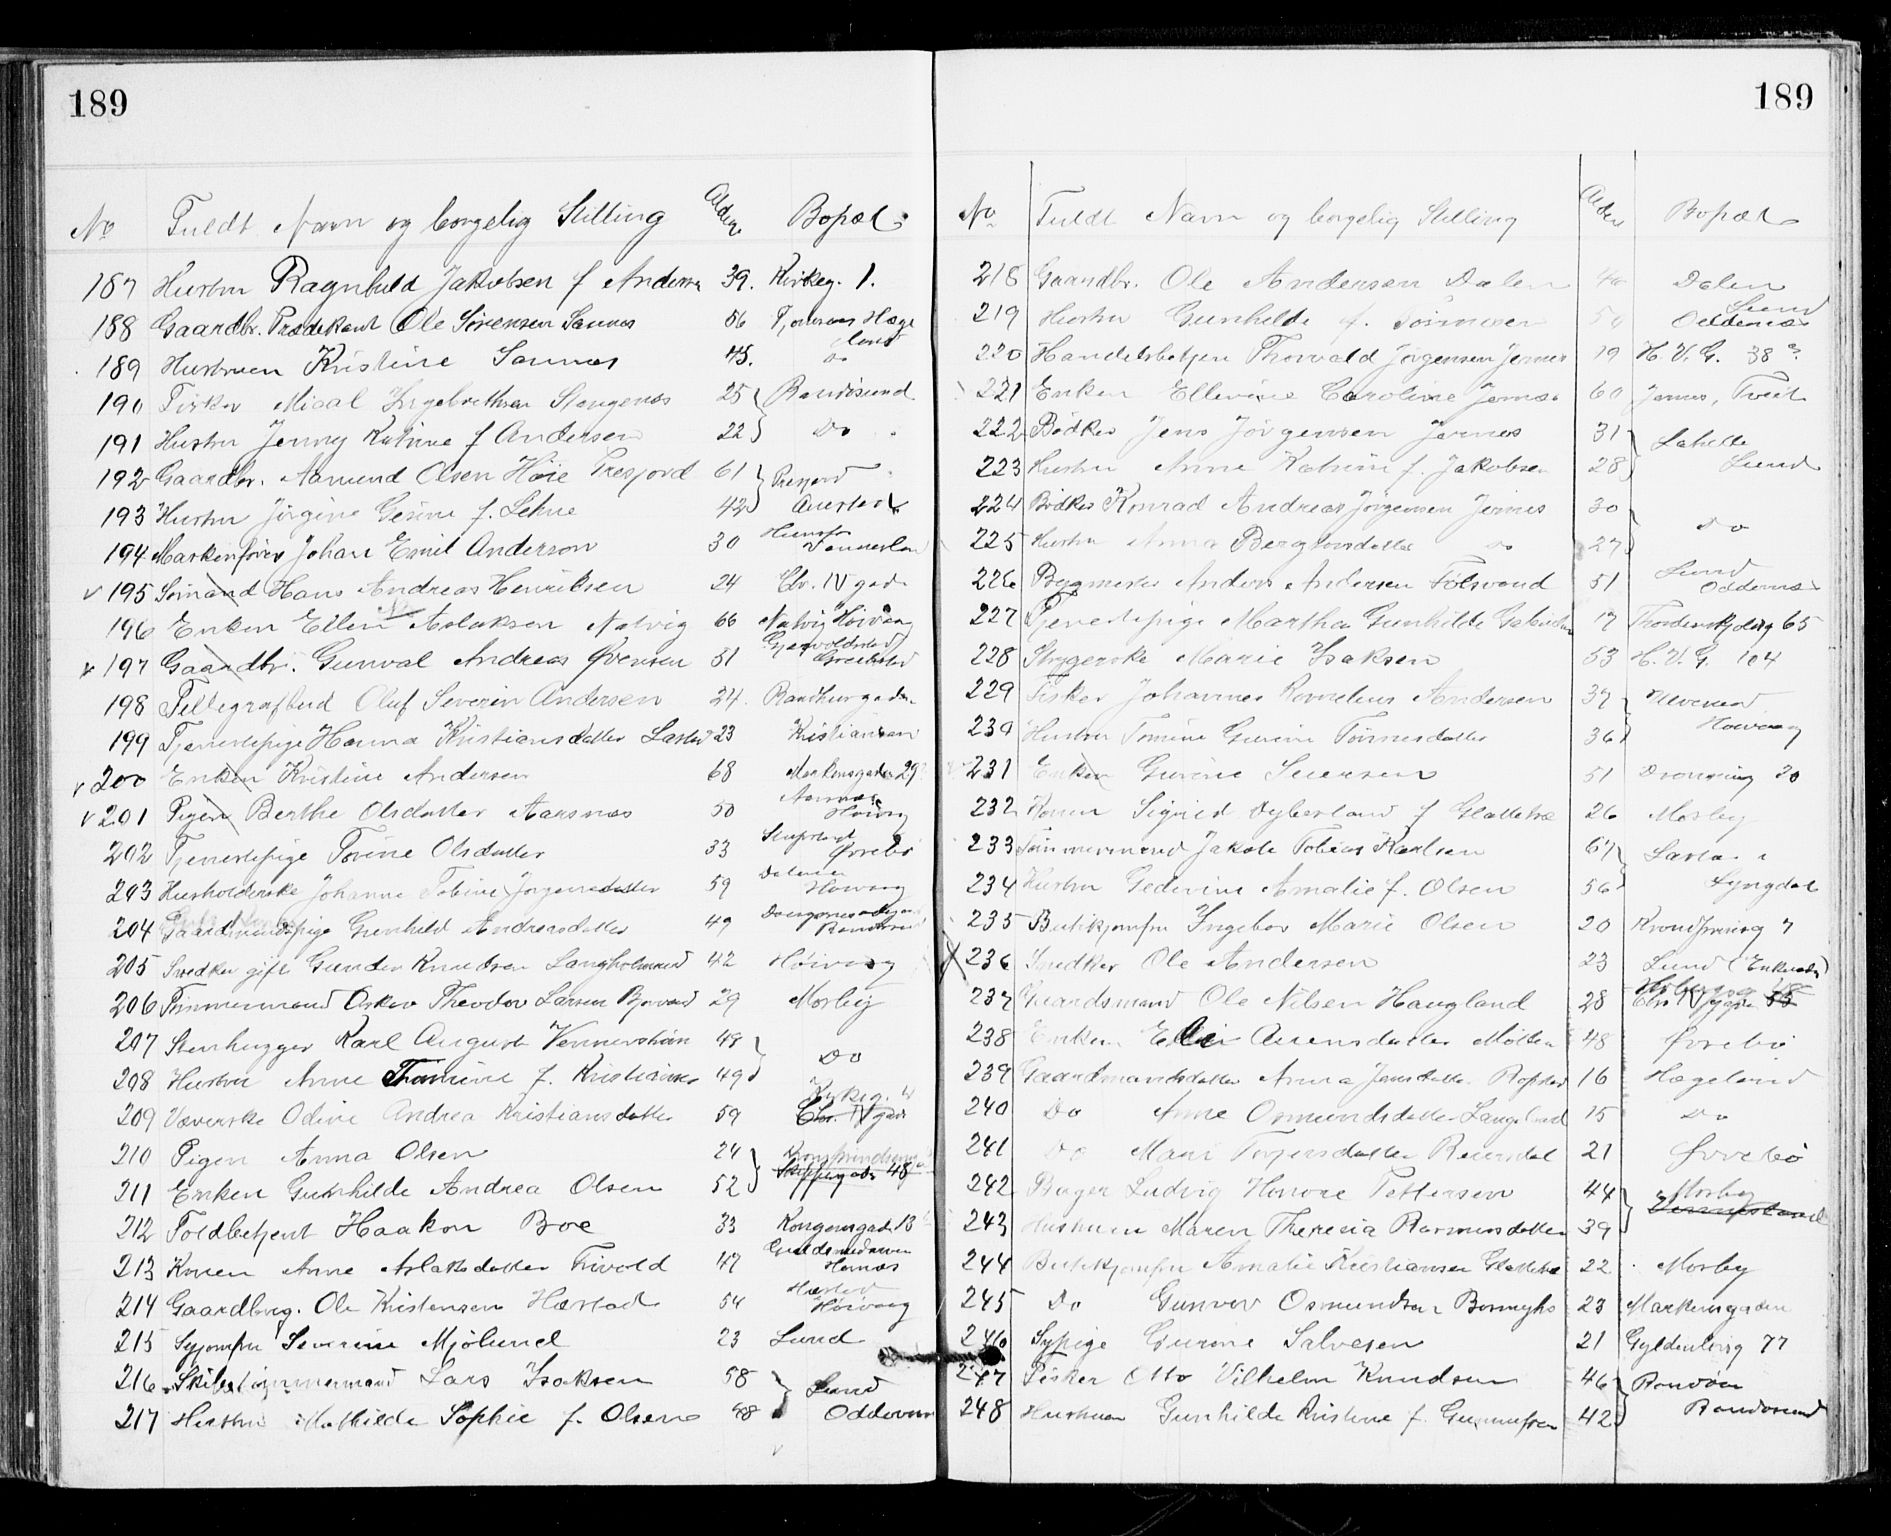 189
No Fuldt Navn og borgelig Stilling Alder Bopæl
187 Hustru Ragnhild Jakobsen f Anderss 39. Kirkeg. 1.
188 Gaardbr. Prædikant Ole Sørensen Sannes 56 Hæge
land
189 Hustruen Kristine Sannes 45. do
190 Fisker Mical Ingebrethsen Stangenes 25 Randøsund
191 Hustru Jenny Katrine f Andersen 22 Do
192 Gaardbr. Aamund Olsen Høie Tresfjord 61 Tresfjord
193 Hustru Jørgine Gesine f. Lehne 42
194 Maskinfører Johan Emil Anderson 30
195 Sømand Hans Andreas Henriksen 24 Chr. IV gade
196 Enken Ellen Aslaksen Natvig 66 Natvig Høivaag
197 Gaardbr. Gunval Andreas Øvensen 51
198 Tellegrafbud Oluf Severin Andersen 24. Raadhusgaden
199 Tjenestepige Hanna Kristiansdatter 23 Kristiansan
200 Enken Kristine Andersen 68 Markensgaden 29
201 Pigen Berthe Olsdatter Aarsnes 50 Aarsnes
Høivaag
202 Tjenestepige Torine Olsdatter 33
Øvrebø
203 Husholderske Johanne Tobine Jørgensdatter 59
Høivaag
204 Gaardmandspige Gunhild Andreasdatter 49
Randøsund
205 Snedker gift Gunder Knudsen Langholmsund 42 Høivaag
206 Tømmermand Oskar Theodor Larsen 29 Mosby
207 Stenhugger Karl August Vennerstrøm 49 Do
208 Hustru Anne Thomine f. Kristiansen 49
Kirkeg. 4
209 Væverske Odine Andrea Kristiansdatter 59 Chr. IV gade
210 Pigen Anna Olsen 24
211 Enken Gunhilde Andrea Olsen 52 Skippergade 48
212 Toldbetjent Haakon Boe 33 Kongensgade 13
213 Konen Anne Aslaksdatter Tivold 47
214 Gaardbrug. Ole Kristensen Hæstad 54 Hæstad
Høivaag
215 Syjomfru Severine Mjølund 23 Lund
216 Skibstømmermand Lars Isaksen 58 Lund
217 Hustru Mathilde Sophie f. Olsen 48 Oddernes
189
No Fuldt Navn og borgelig Stilling Alder Bopæl
218 Gaardbr. Ole Andersen Dalen 40 Dalen
219 Hustru Gunhilde f. 50 Lund
Oddernes
220 Handelsbetjen Thorvald Jørgensen Jernes 19 H. V. G. 38
221 Enken Ellevine Caroline Jernes 60 Jernes, Tveit
222 Bødker Jens Jørgensen Jernes 31
223 Hustru Anne Katrine f. Jakobsen 28 Lahelle
Lund
224 Bødker Konrad Andreas Jørgensen Jernes 30
225 Hustru Anna Bergtonsdatter do 27 Do
226 Bygmester Anders Andersen Følsvand 51 Lund
Oddernes
227 Tjenestepige Martha Gunhilde 17 Thordenskjoldsg 65
228 Strygerske Marie Isaksen 53 H. V. G. 104
229 Fisker Johannes Kornelius Andersen 37 Ulvesund
230 Hustru Tomine Gurine Tønnesdatter 36 Høivaag
231 Enken Gurine Seversen 51 Dronning 20
232 Konen Sigrid Dyberland f Glattetre 26 Mosby
233 Tømmermand Jakob Tobias Karlsen 67
234 Hustru Gedevine Amalie f. Olsen 56 Lyngdal
235 Butikjomfru Ingebor Marie Olsen 20 Kronprinsg 7
236 Snedker Ole Andersen 23 Lund (Enkesæde)
237 Gaardsmand Ole Nilsen Haugland 28 Chr. IV gade 53
238 Enken Elli Auensdatter 48 Øvrebø
239 Gaardmandsdatter Anna Jensdatter Ropstad 16 Hægeland
240 Do Anne Osmundsdatter Langeland 15 Do
241 Do Mari Torjersdatter Reiersdal 21 Øvrebø
242 Bager Ludvig Honore Pettersen 44 Mosby
243 Hustruen Maren Theresia Rasmusdatter 39 Vennesland
244 Butikjomfru Amalie Kristiansen Glattetre 22 Mosby
245 Do Gunvor Osmundsen 23 Markensgaden
246 Sypige Gurine Salvesen 21 Gyldenløvsg 77
247 Fisker Otto Vilhelm Knudsen 46 Randøen
248 Hustruen Gunhilde Kristine f. Gunnufsen 42 Randøsund